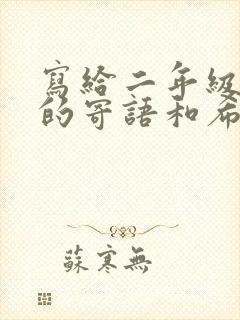 寫給二年級
的寄語和希
蘇寒無